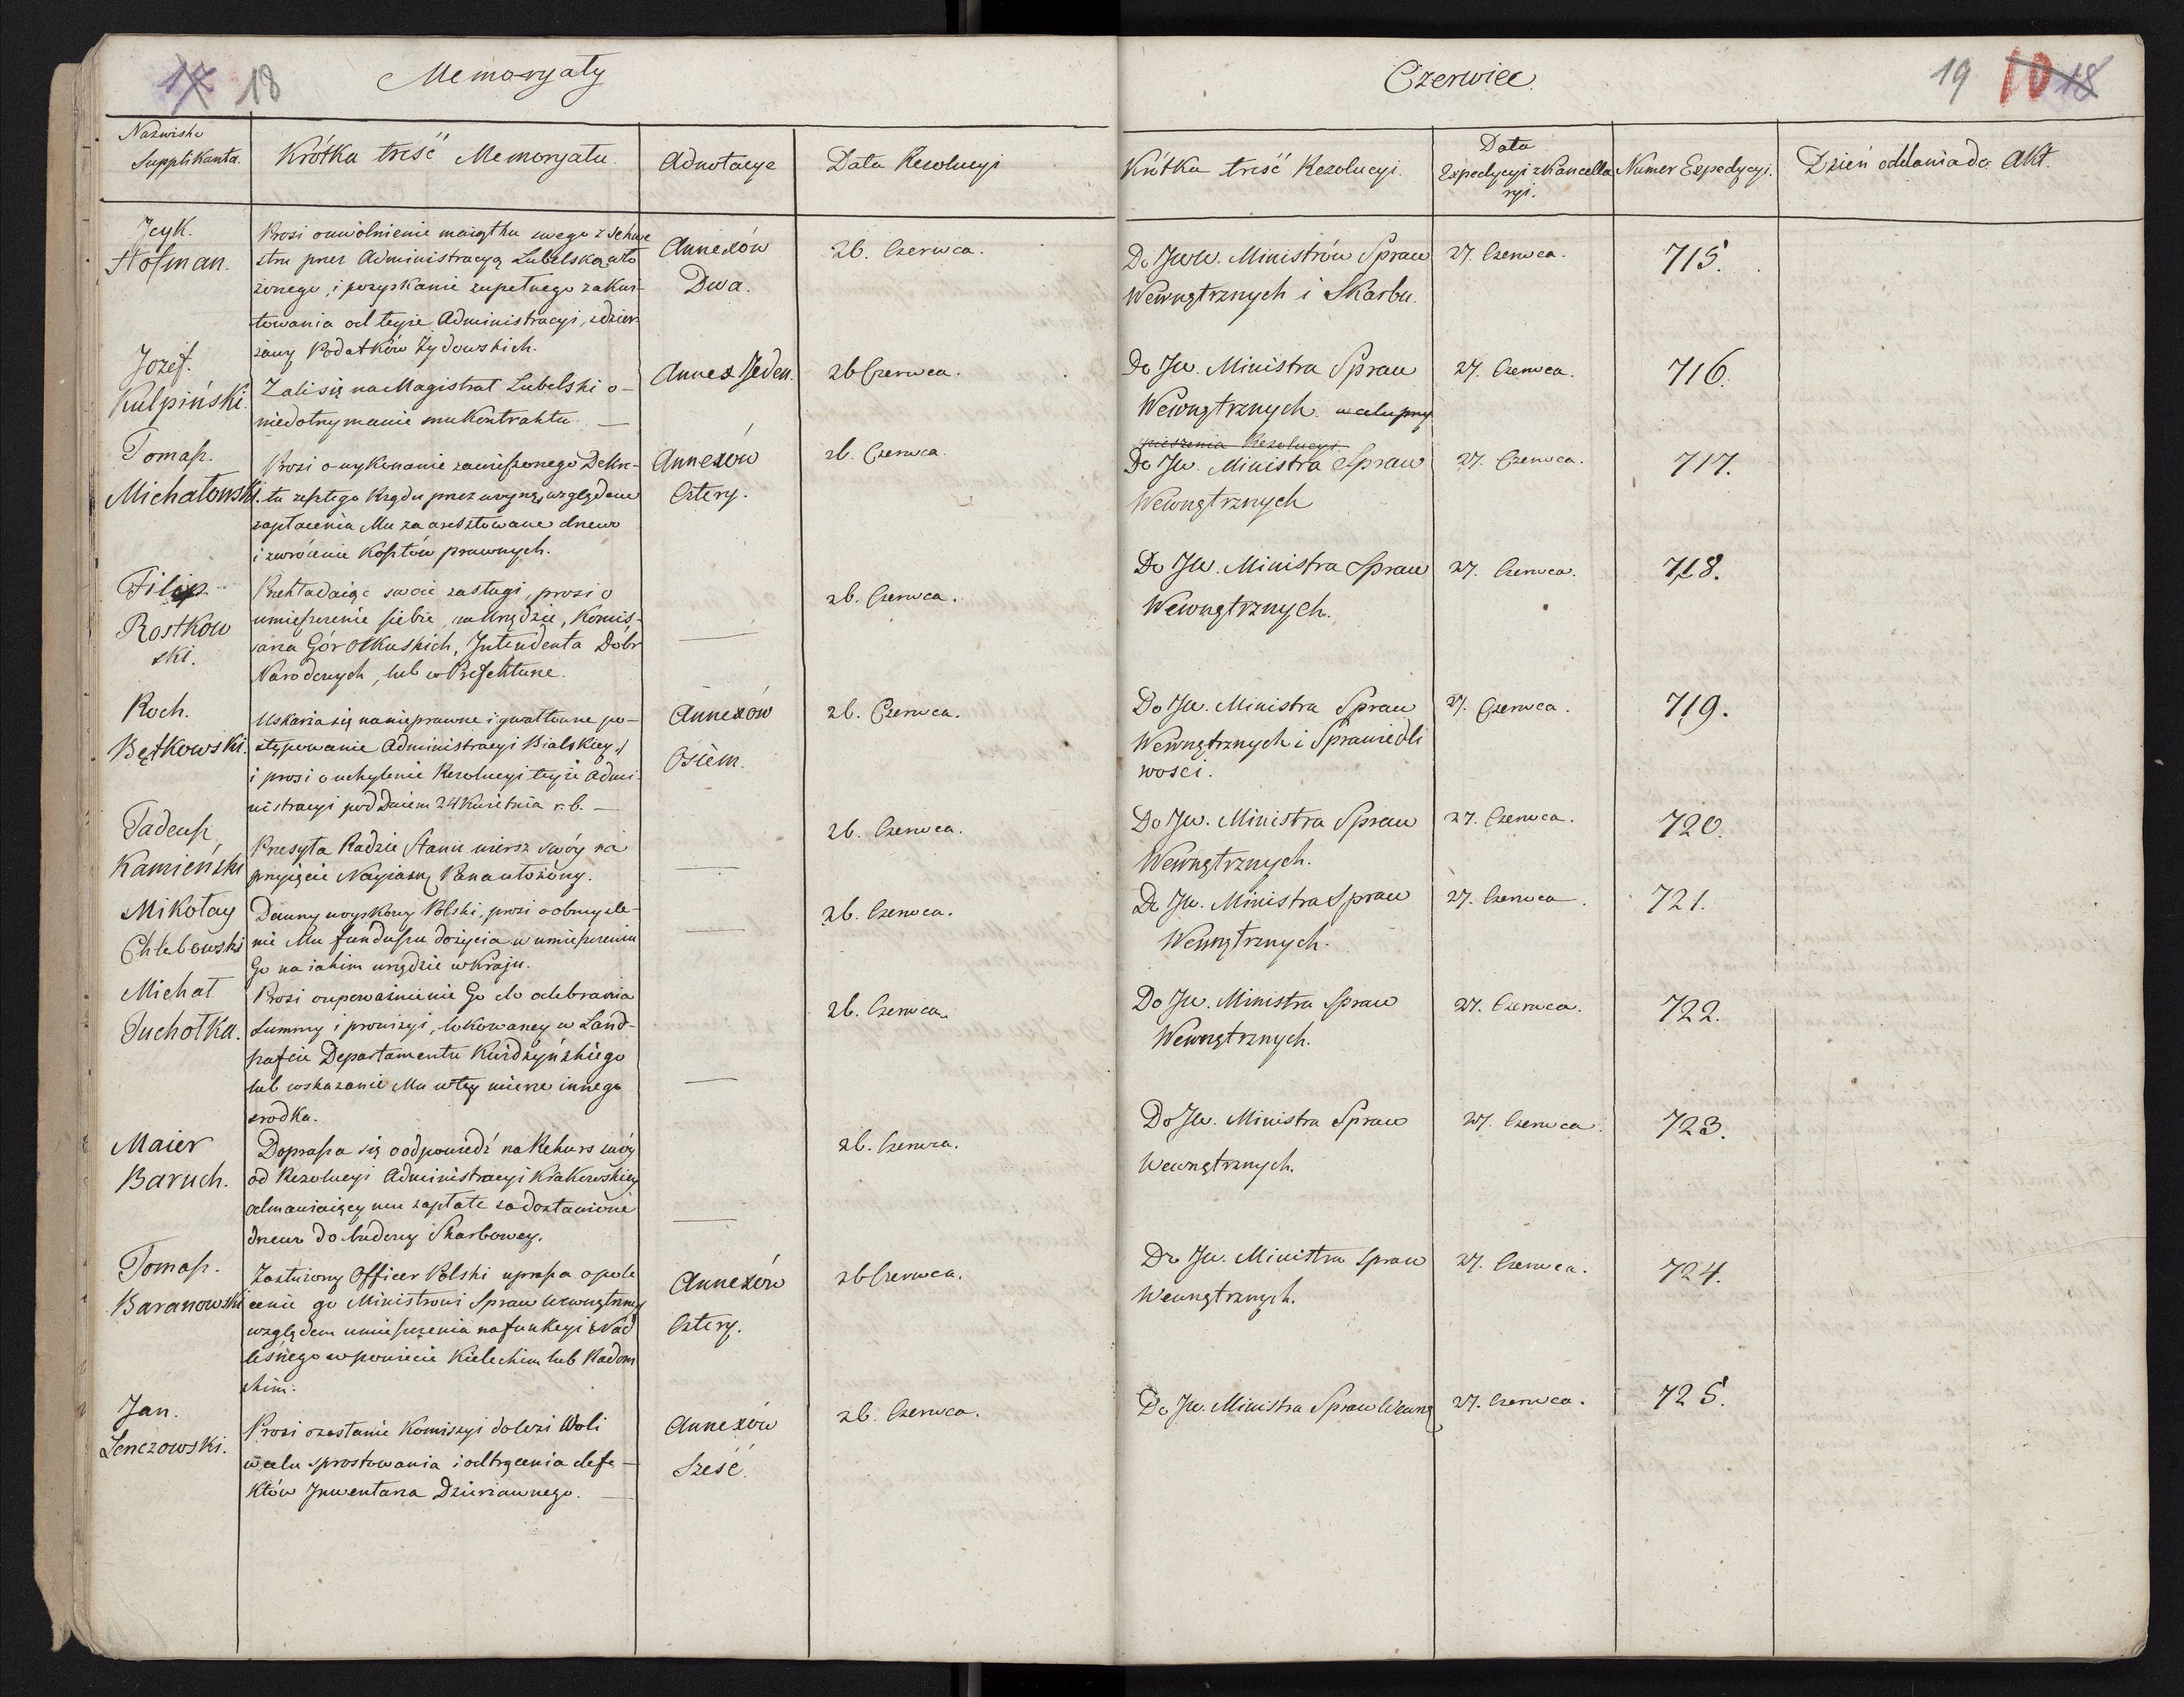 17 18 Memoryały
Nazwisko Supplikanta. Krótka treść Memoryału Adnotacye Data Rezolucyi
Jcyk. Hofman.
Prosi o uwolnienie maiątku swego z sekwe
stru przez Administracyą Lubelską wło
żonego, i pozyskanie zupełnego zakwi-
towania od teyże Administracyi, z dzier-
żawy Podatków Żydowskich.
Annexów Dwa.
26. Czerwca.
Jozef. Kulpiński.
Żali się na Magistrat Lubelski o-
niedotrzymanie mu Kontraktu. —
Annex Jeden.
26 Czerwca.
Tomasz. Michałowski.
Prosi o wykonanie zawieszonego Dekre-
tu zeszłego Rządu przez woynę, względem
zapłacenia Mu za aresztowane drzewo
i zwrócenie Kosztów prawnych.
Annexów Cztery.
26. Czerwca.
Filip. Rostkow ski.
Przekładaiąc swoie zasługi, prosi o
umieszczenie siebie, na Urzędzie, Komis-
sarza Gór Olkuskich, Intendenta Dóbr
Narodowych, lub w Prefekturze.
26. Czerwca.
Roch. Bętkowski.
Uskarża się na nieprawne i gwałtowne po-
stępowanie Administracyi Bialskiey,
i prosi o uchylenie Rezolucyi teyże Admi-
nistracyi pod Dniem 24 Kwietnia r.b. —
Annexów Osiem.
26. Czerwca.
Tadeusz Kamieński
Przesyła Radzie Stanu wiersz swóy na
przyięcie Nayiaśn. Pana ułożony.
26. Czerwca.
Mikołay Chlebowski
Dawny woyskowy Polski, prosi o obmyśle-
nie Mu funduszu do życia w umieszczeniu
Go na iakim urzędzie w Kraju.
26. Czerwca.
Michał Suchołka.
Prosi o upoważnienie Go do odebrania
Summy i prowizyi, lokowaney w Land-
szafcie Departamentu Kwidzyńskiego
lub wskazanie Mu w tey mierze innego
srodka.
26. Czerwca.
Maier Baruch.
Doprasza się o odpowiedź na Rekurs swóy
od Rezolucyi Administracyi Krakowskiey
odmawiaiącey mu zapłate za dostawione
drzewo do budowy Skarbowey.
26. Czerwca.
Tomasz. Baranowski
Zasłużony Officer Polski uprasza o pole
cenie go Ministrowi Spraw Wewnętrzny
względem umieszczenia na funkcyi Nad
leśnego w powiecie Kieleckim lub Radom
skim.
Annexów Cztery.
26 Czerwca.
Jan. Lenczowski.
Prosi o zesłanie Komissyi do Wsi Woli
w celu sprostowania i odtrącenia defe-
któw Jnwentarza Dzierżawnego. —
Annexów Sześć.
26. Czerwca.
Czerwiec. 19 10 18
Krótka treść Rezolucyi. Data Expedycyi z Kancella ryi. Numer Expedycyi. Dzień oddania do Akt.
Do JWW. Ministrów Spraw 27. Czerwca. 715.
Wewnętrznych i Skarbu.
Do JW. Ministra Spraw 27. Czerwca. 716.
Wewnętrznych. w celu przy
spieszenia Rezolucyi.
Do JW. Ministra Spraw 27. Czerwca. 717.
Wewnętrznych
Do JW. Ministra Spraw 27. Czerwca. 718.
Wewnętrznych.
Do JW. Ministra Spraw 27. Czerwca. 719.
Wewnętrznych i Sprawiedli
wosci.
Do JW. Ministra Spraw 27. Czerwca. 720.
Wewnętrznych.
Do JW. Ministra Spraw 27. Czerwca. 721.
Wewnętrznych.
Do JW. Ministra Spraw 27. Czerwca. 722.
Wewnętrznych.
Do JW. Ministra Spraw 27. Czerwca. 723.
Wewnętrznych.
Do JW. Ministra Spraw 27. Czerwca. 724.
Wewnętrznych.
Do JW. Ministra Spraw Wewnę 27. Czerwca. 725.